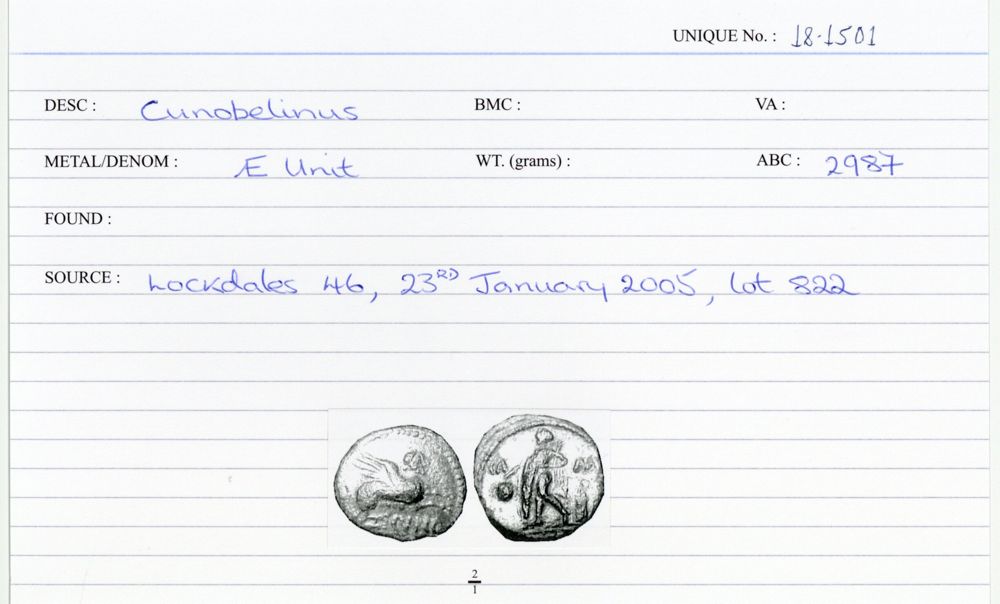 UNIQUE No. : 18.1501
DESC : Cunobelinus BMC : VA :
METAL/DENOM : Æ Unit WT. (grams) : ABC : 2987
FOUND :
SOURCE : Lockdales 46, 23RD January 2005, lot 822
2
1